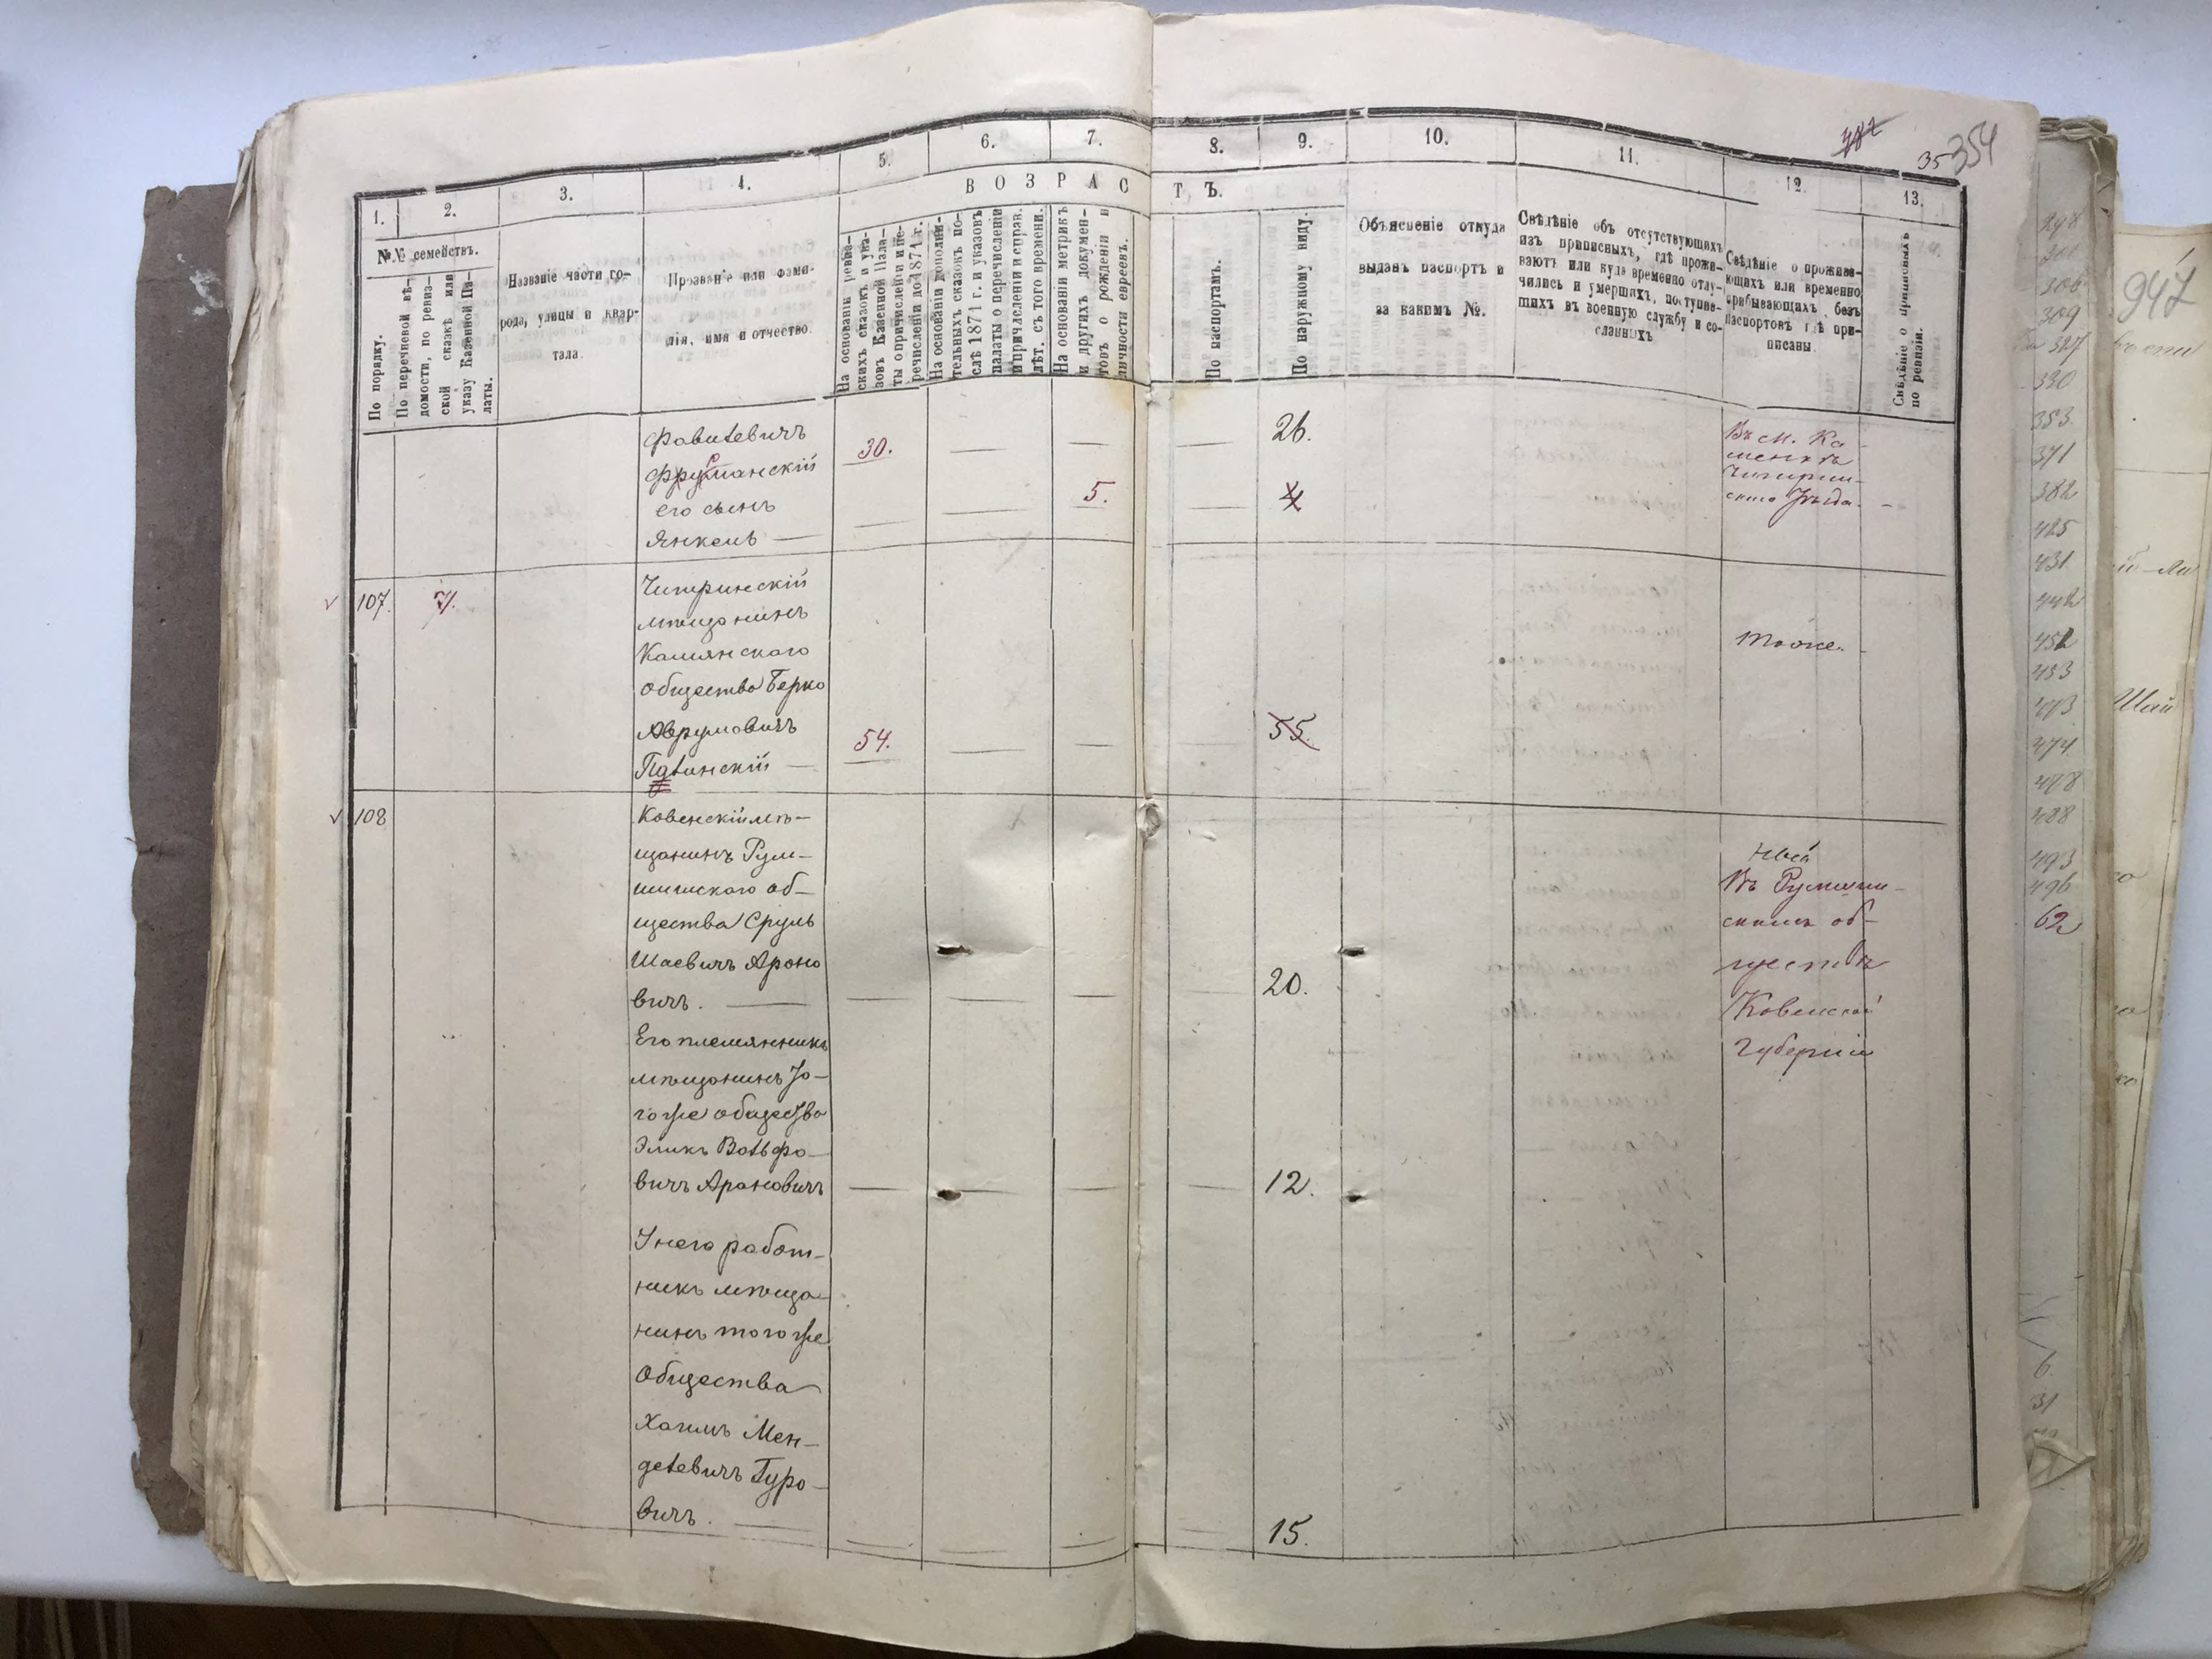 354
35
1. 2. 3. 4. 5. 6. 7. 8. 9. 10. 11. 12. 13.
В О З Р А С Т Ъ.
№№ семействъ.
По порядку.
По перечневой вѣ-
домости, по ревиз-
ской сказкѣ или
указу Казенной Па-
латы.
Названіе части го-
рода, улицы и квар-
тала.
Прозваніе или фами-
лія, имя и отчество.
На основаніи ревиз-
скихъ сказокъ и ука-
зовъ Казенной Пала-
ты о причисленіи и пе-
речисленіи до 1871 г.
На основаніи дополни-
тельныхъ сказокъ по-
слѣ 1871 г. и указовъ
палаты о перечисленіи
и причисленіи и справ.
лѣт. съ того времени.
На основаніи метрикъ
и другихъ докумен-
товъ о рожденіи и
личности евреевъ.
По паспортамъ.
По наружному виду.
Объясненіе откуда
выданъ паспортъ и
за какимъ №.
Свѣдѣніе объ отсутствующихъ
изъ приписныхъ, гдѣ прожи-
ваютъ или куда временно отлу-
чились и умершихъ, поступив-
шихъ въ военную службу и со-
сланныхъ
Свѣдѣніе о прожива-
ющихъ или временно
прибывающихъ безъ
паспортовъ гдѣ при-
писаны.
Свѣдѣніе о приписныхъ
по ревизіи.
30. — — 26.
его сынъ
Янкель — — — 5. — 4
Въ м. Ка-
менкѣ
Чигирин-
скаго Уѣзда.
107. 7.
Чигринскій
мѣщанинъ
Камянскаго
общества Берко
Аврумовичъ
54. — — — 55.
тоже.
108
Ковенскій мѣ-
щанинъ Рум-
шишскаго об-
щества Сруль
Шаевичъ Ароно
вичъ. — — — — — 20.
Его племянникъ
мѣщанинъ то-
гоже общества
Эликъ Вольфо-
вичъ Ароновичъ — — — — 12.
У него работ-
никъ мѣща-
нинъ тогоже
Общества
Хаимъ Мен-
делевичъ Гуро-
вичъ. — 15.
Въ Румшиш-
скомъ об-
ществѣ
Ковенской
Губерніи
298
306
309
327
330
353
371
382
425
431
442
452
453
473
474
478
488
493
496
62
6.
31
947
Шай